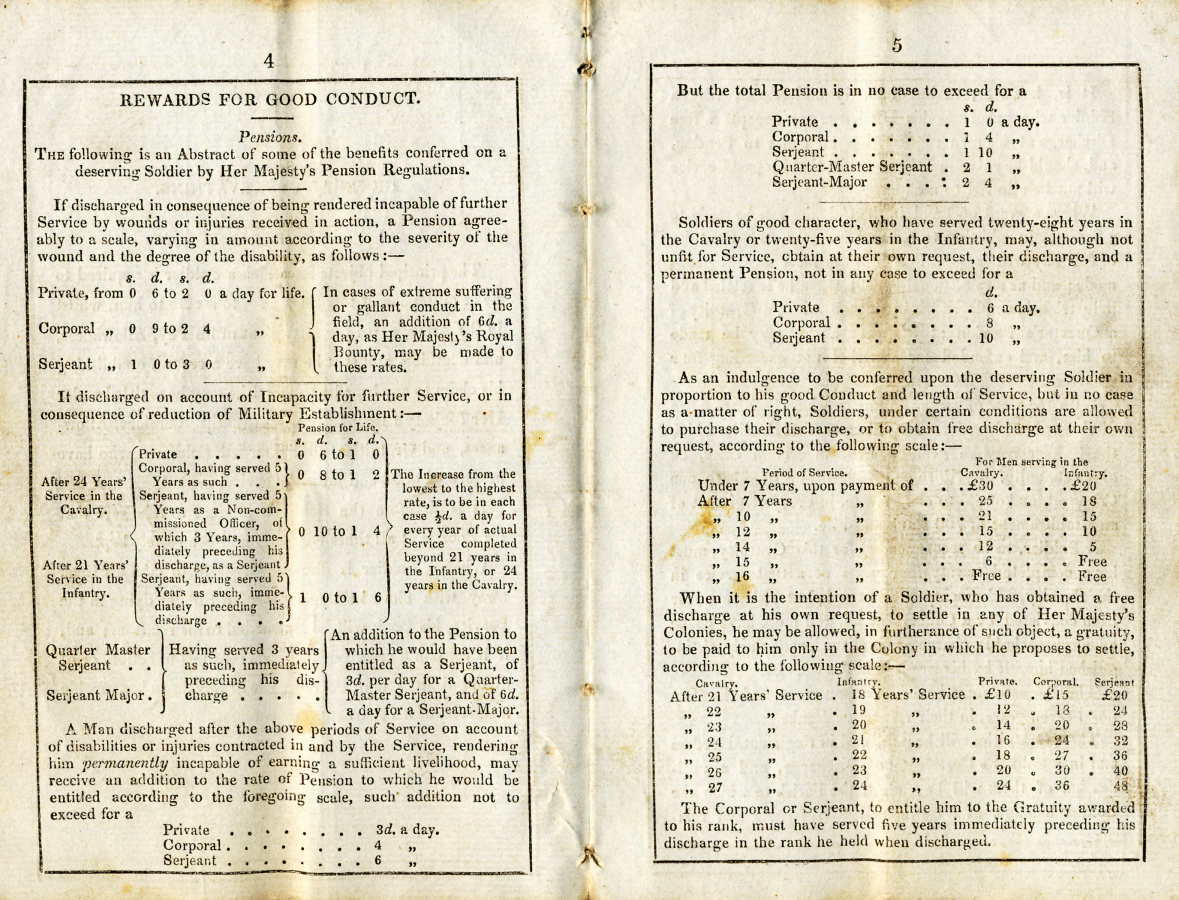 4
REWARDS FOR GOOD CONDUCT.
Pensions.
THE following is an Abstract of some of the benefits conferred on a
deserving Soldier by Her Majesty's Pension Regulations.
If discharged in consequence of being rendered incapable of further
Service by wounds or injuries received in action, a Pension agree-
ably to a scale, varying in amount according to the severity of the
wound and the degree of the disability, as follows :—
s. d. s. d.
Private, from 0 6 to 2 0 a day for life.
Corporal „ 0 9 to 2 4 „
Serjeant „ 1 0 to 3 0 „
In cases of extreme suffering
or gallant conduct in the
field, an addition of 6d. a
day, as Her Majesty's Royal
Bounty, may be made to
these rates.
If discharged on account of Incapacity for further Service, or in
consequence of reduction of Military Establishment :—
Pension for Life.
s. d. s. d.
After 24 Years'
Service in the
Cavalry.
After 21 Years'
Service in the
Infantry.
Private . . . . . 0 6 to 1 0
Corporal, having served 5
Years as such . . . 0 8 to 1 2
Serjeant, having served 5
Years as a Non-com-
missioned Officer, of
which 3 Years, imme-
diately preceding his
discharge, as a Serjeant 0 10 to 1 4
Serjeant, having served 5
Years as such, imme-
diately preceding his
discharge . . . . 1 0 to 1 6
The Increase from the
lowest to the highest
rate, is to be in each
case ½d. a day for
every year of actual
Service completed
beyond 21 years in
the Infantry, or 24
years in the Cavalry.
Quarter Master
Serjeant . .
Serjeant Major .
Having served 3 years
as such, immediately
preceding his dis-
charge . . . . .
An addition to the Pension to
which he would have been
entitled as a Serjeant, of
3d. per day for a Quarter-
Master Serjeant, and of 6d.
a day for a Serjeant-Major.
A Man discharged after the above periods of Service on account
of disabilities or injuries contracted in and by the Service, rendering
him permanently incapable of earning a sufficient livelihood, may
receive an addition to the rate of Pension to which he would be
entitled according to the foregoing scale, such addition not to
exceed for a
Private . . . . . . . . 3d. a day.
Corporal . . . . . . . . 4 „
Serjeant . . . . . . . . 6 „
5
But the total Pension is in no case to exceed for a
s. d.
Private . . . . . . . 1 0 a day.
Corporal . . . . . . . 1 4 „
Serjeant . . . . . . . 1 10 „
Quarter-Master Serjeant . 2 1 „
Serjeant-Major . . . : 2 4 „
Soldiers of good character, who have served twenty-eight years in
the Cavalry or twenty-five years in the Infantry, may, although not
unfit for Service, obtain at their own request, their discharge, and a
permanent Pension, not in any case to exceed for a
d.
Private . . . . . . . . 6 a day.
Corporal . . . . . . . . 8 „
Serjeant . . . . . . . . 10 „
As an indulgence to be conferred upon the deserving Soldier in
proportion to his good Conduct and length of Service, but in no case
as a matter of right, Soldiers, under certain conditions are allowed
to purchase their discharge, or to obtain free discharge at their own
request, according to the following scale :—
For Men serving in the
Period of Service. Cavalry. Infantry.
Under 7 Years, upon payment of . . . £30 . . . . £20
After 7 Years „ . . . 25 . . . . 18
„ 10 „ „ . . . 21 . . . . 15
„ 12 „ „ . . . 15 . . . . 10
„ 14 „ „ . . . 12 . . . . 5
„ 15 „ „ . . . 6 . . . . Free
„ 16 „ „ . . . Free . . . . Free
When it is the intention of a Soldier, who has obtained a free
discharge at his own request, to settle in any of Her Majesty's
Colonies, he may be allowed, in furtherance of such object, a gratuity,
to be paid to him only in the Colony in which he proposes to settle,
according to the following scale :—
Cavalry. Infantry. Private. Corporal. Serjeant
After 21 Years' Service . 18 Years' Service . £10 . £15 £20
„ 22 „ . 19 „ . 12 . 18 . 24
„ 23 „ . 20 „ . 14 . 20 . 28
„ 24 „ . 21 „ . 16 . 24 . 32
„ 25 „ . 22 „ . 18 . 27 . 36
„ 26 „ . 23 „ . 20 . 30 . 40
„ 27 „ . 24 „ . 24 . 36 48
The Corporal or Serjeant, to entitle him to the Gratuity awarded
to his rank, must have served five years immediately preceding his
discharge in the rank he held when discharged.